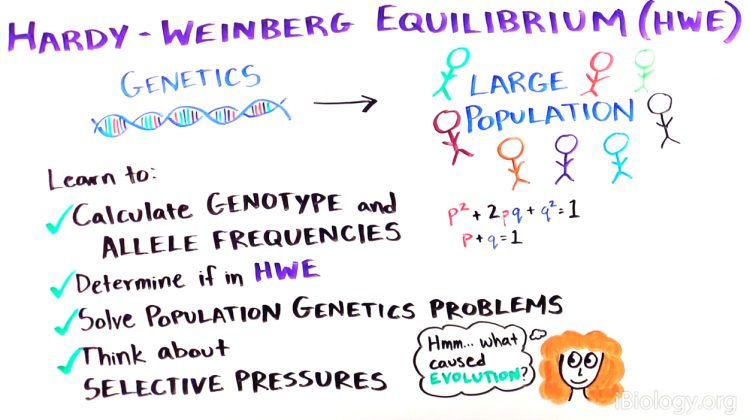 HARDY-WEINBERG EQUILIBRIUM (HWE)
GENETICS
LARGE
POPULATION
Learn to:
Calculate GENOTYPE and
ALLELE FREQUENCIES
p² + 2pq + q² = 1
p + q = 1
Determine if in HWE
Solve POPULATION GENETICS PROBLEMS
Think about
SELECTIVE PRESSURES
Hmm... what
caused
EVOLUTION?
iBiology.org